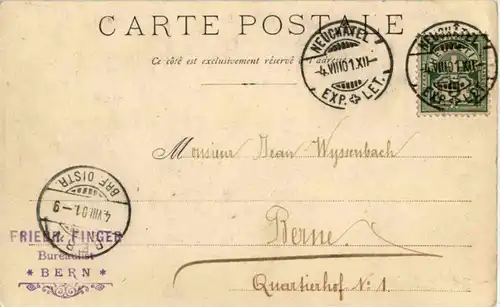 CARTE POSTALE
NEUCHATEL
4.VIII01.XII
EXP. LET.
NEUCHATEL
4.VIII01.XII
EXP. LET.
Ce côté est exclusivement réservé à l'adresse
5
Monsieur Jean Wyssenbach
BRF. DISTR.
4.VIII.01.-9
BERN
FRIEDR. FINGER
Bureaulist
* BERN *
Berne.
Quartierhof No 1.